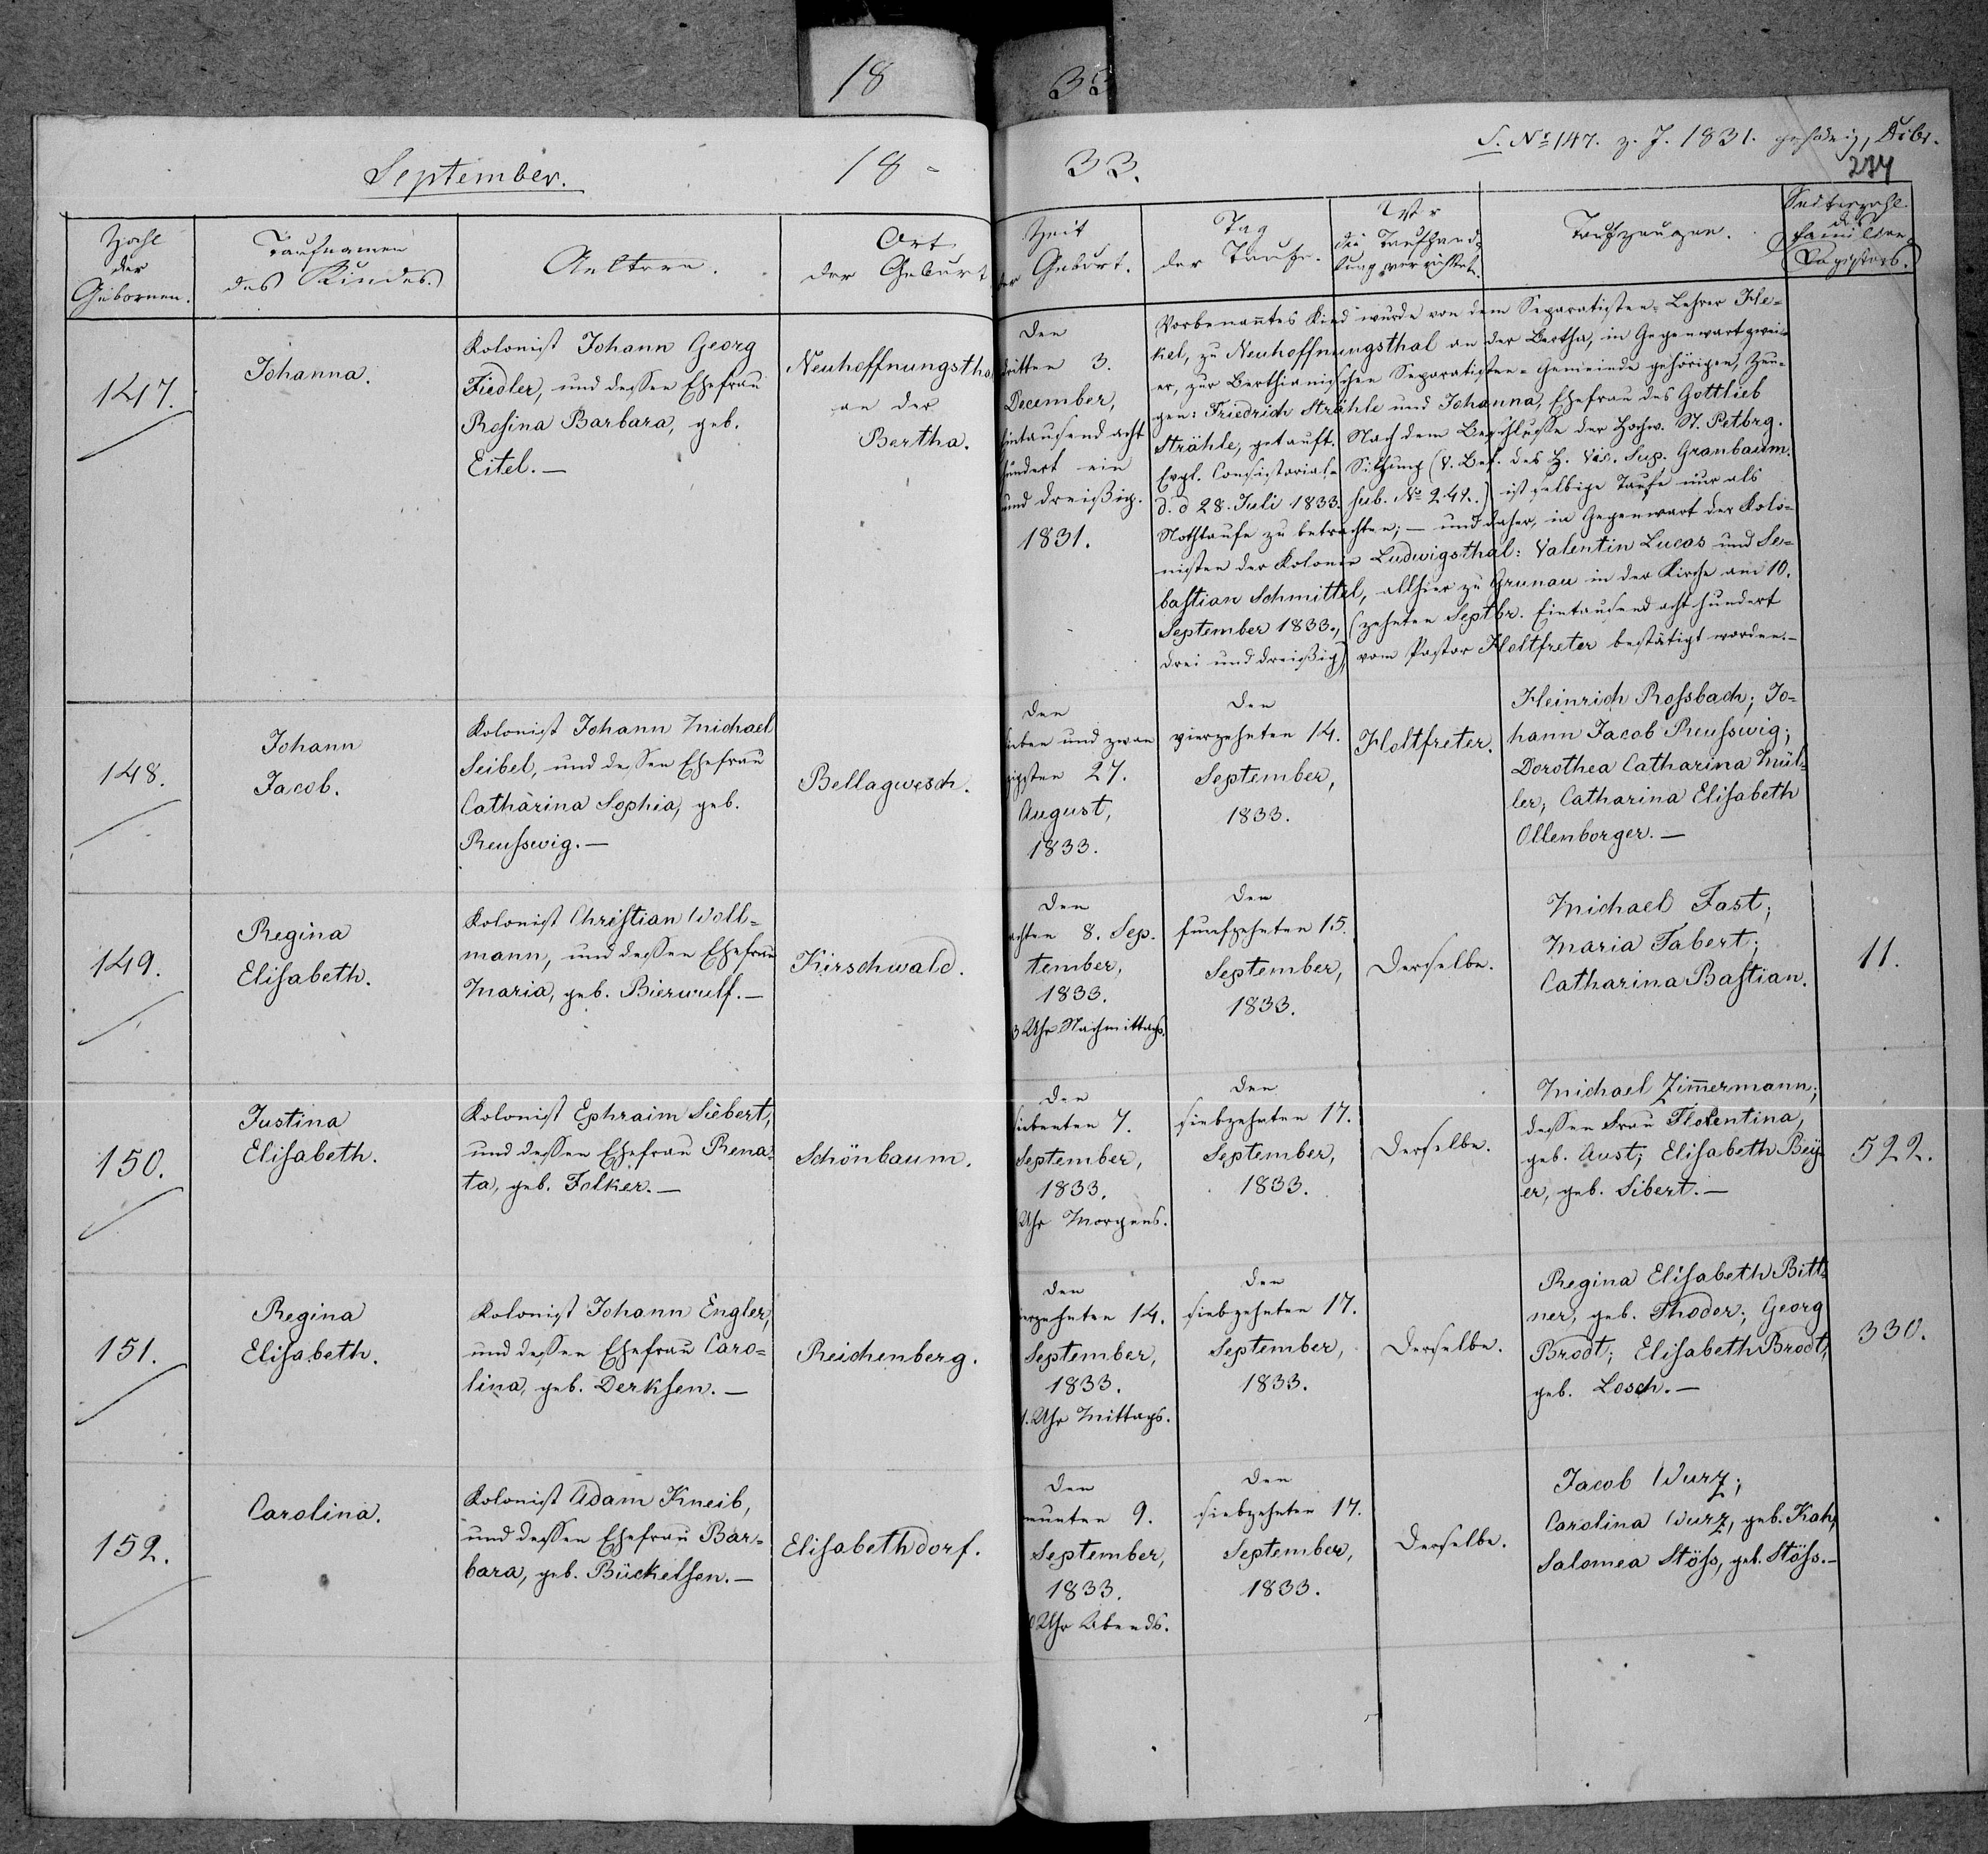 18 33
S. No 147. z. J. 1831. gehörig,
234
September. 18 - 33.
Zahl der Gebornen.
Taufnamen des Kindes.
Aeltern.
Ort der Geburt
Zeit der Geburt.
Tag der Taufe.
Wer die Taufhandlung verrichtet.
Taufzeugen.
des Familien-Registers.
147.
Johanna.
Kolonist Johann Georg
Fiedler, und dessen Ehefrau
Rosina Barbara, geb.
Eitel. —
Neuhoffnungsthal
an der
Bertha.
Den
dritten 3.
December,
Eintausend acht
hundert ein
und dreißig.
1831.
Vorbenanntes Kind wurde von dem Separatisten-Lehrer Hekel,
zu Neuhoffnungsthal an der Bertha, in Gegenwart zwei-
er, zur Berthianischen Separatisten-Gemeinde gehörigen, Zeu-
gen: Friedrich Strähle und Johanna, Ehefrau des Gottlieb
Strähle, getauft. Nach dem Beschlusse der Hochw. St. Petbrg.
Evgl. Consistorial-Sitzung (V. Bef. des H. Vic. Sup. Granbaum.
d. d 28. Juli 1833. sub. No 242.) ist selbige Taufe nur als
Nothtaufe zu betrachten; — und daher, in Gegenwart der Kolo-
nisten der Kolonie Ludwigsthal: Valentin Lucas und Se-
bastian Schmittel, allhier zu Grunau in der Kirche am 10.
September 1833., (zehnten Septbr. Eintausend acht hundert
drei und dreißig) vom Pastor Holtfreter bestätigt worden. —
148.
Johann
Jacob.
Kolonist Johann Michael
Seibel, und dessen Ehefrau
Catharina Sophia, geb.
Reusswig. —
Bellagwesch.
Den
sieben und zwan
zigsten 27.
August,
1833.
Den
vierzehnten 14.
September,
1833.
Holtfreter.
Heinrich Rossbach; Jo-
hann Jacob Reusswig;
Dorothea Catharina Mül-
ler; Catharina Elisabeth
Ollenborger. —
149.
Regina
Elisabeth.
Kolonist Christian Woll-
mann, und dessen Ehefrau
Maria, geb. Bierwulf. —
Kirschwald.
Den
achten 8. Sep-
tember,
1833.
3 Uhr Nachmittags.
Den
funfzehnten 15.
September,
1833.
Derselbe.
Michael Fast;
Maria Tabert;
Catharina Bastian.
11.
150.
Justina
Elisabeth.
Kolonist Ephraim Siebert,
und dessen Ehefrau Rena-
ta, geb. Folker. —
Schönbaum.
Den
siebenten 7.
September,
1833.
Uhr Morgens.
Den
siebzehnten 17.
September,
1833.
Derselbe.
Michael Zimmermann;
dessen Frau Florentina,
geb. Aust; Elisabeth Bey-
er, geb. Sibert. —
522.
151.
Regina
Elisabeth.
Kolonist Johann Engler,
und dessen Ehefrau Caro-
lina, geb. Derksen. —
Reichenberg.
Den
vierzehnten 14.
September,
1833.
1. Uhr Mittags.
Den
siebzehnten 17.
September,
1833.
Derselbe.
Regina Elisabeth Bitt-
ner, geb. Thoder; Georg
Brodt; Elisabeth Brodt,
geb. Losch. —
330.
152.
Carolina.
Kolonist Adam Kneib,
und dessen Ehefrau Bar-
bara, geb. Bückelsen. —
Elisabethdorf.
Den
neunten 9.
September,
1833.
Uhr Abends.
Den
siebzehnten 17.
September,
1833.
Derselbe.
Jacob Wurz;
Carolina Wurz, geb. Kah;
Salomea Stöss, geb. Stöss. —